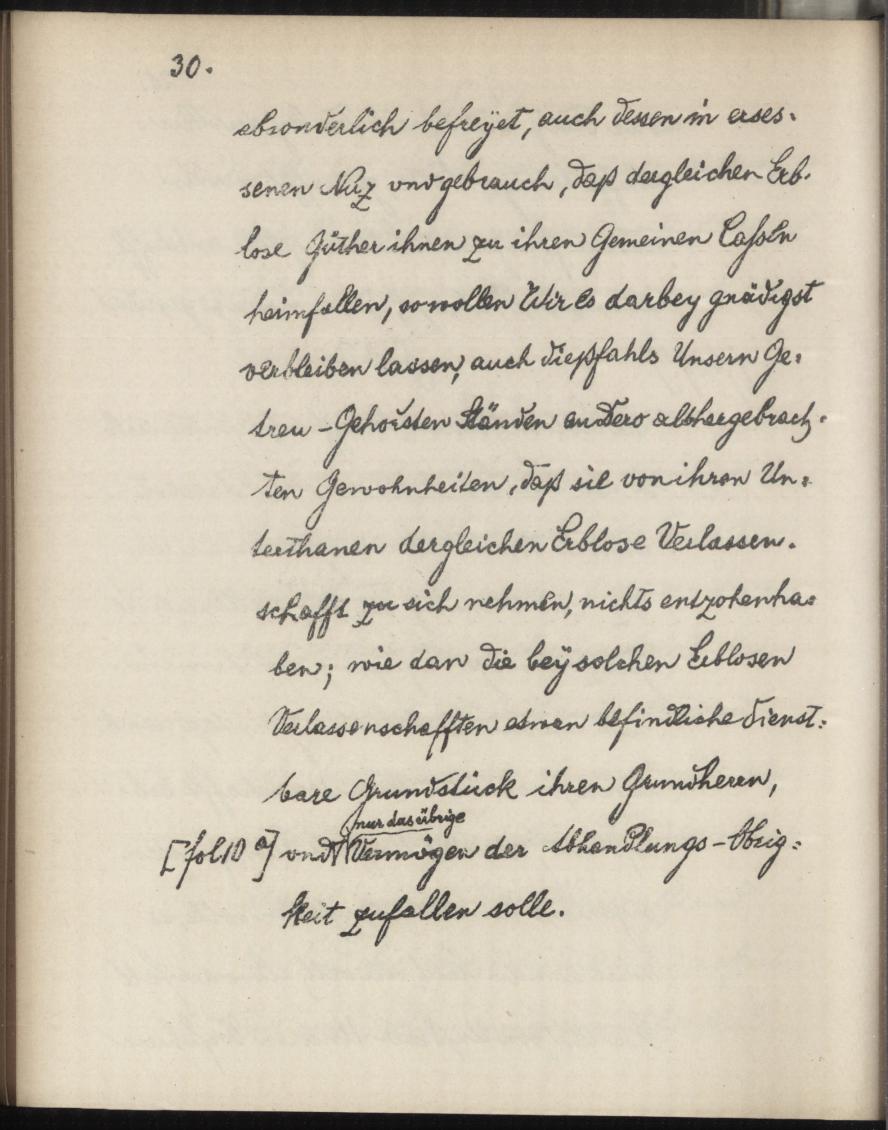 30.
absonderlich befreÿet, auch dessen in erses-
senen Nuz vnd gebrauch, daß dergleichen Erb-
lose Güther ihnen zu ihren Gemeinen Cassen
heimfallen, so wollen Wir es darbey gnädigst
verbleiben lassen, auch dießfahls Unsern Ge-
treu-Gehorsten Ständen an Dero althergebrach-
ten Gewohnheiten, daß sie von ihren Un-
terthanen dergleichen Erblose Verlassen-
schafft zu sich nehmen, nichts entzohen ha-
ben; wie dan die beÿ solchen Erblosen
Verlassenschafften etwan befindliche dienst-
bare Grundstück ihren Grundherrn,
nur das übrige
[fol 10 a] vnd Vermögen der Abhandlungs-Obrig-
keit zufallen solle.